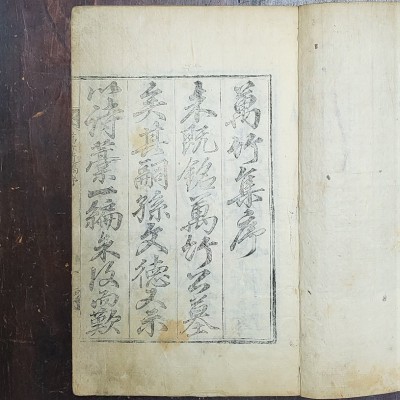 萬竹集序
朱既銘萬竹公墓
矣其嗣孫文德又示
以詩藁一編朱汝而歎